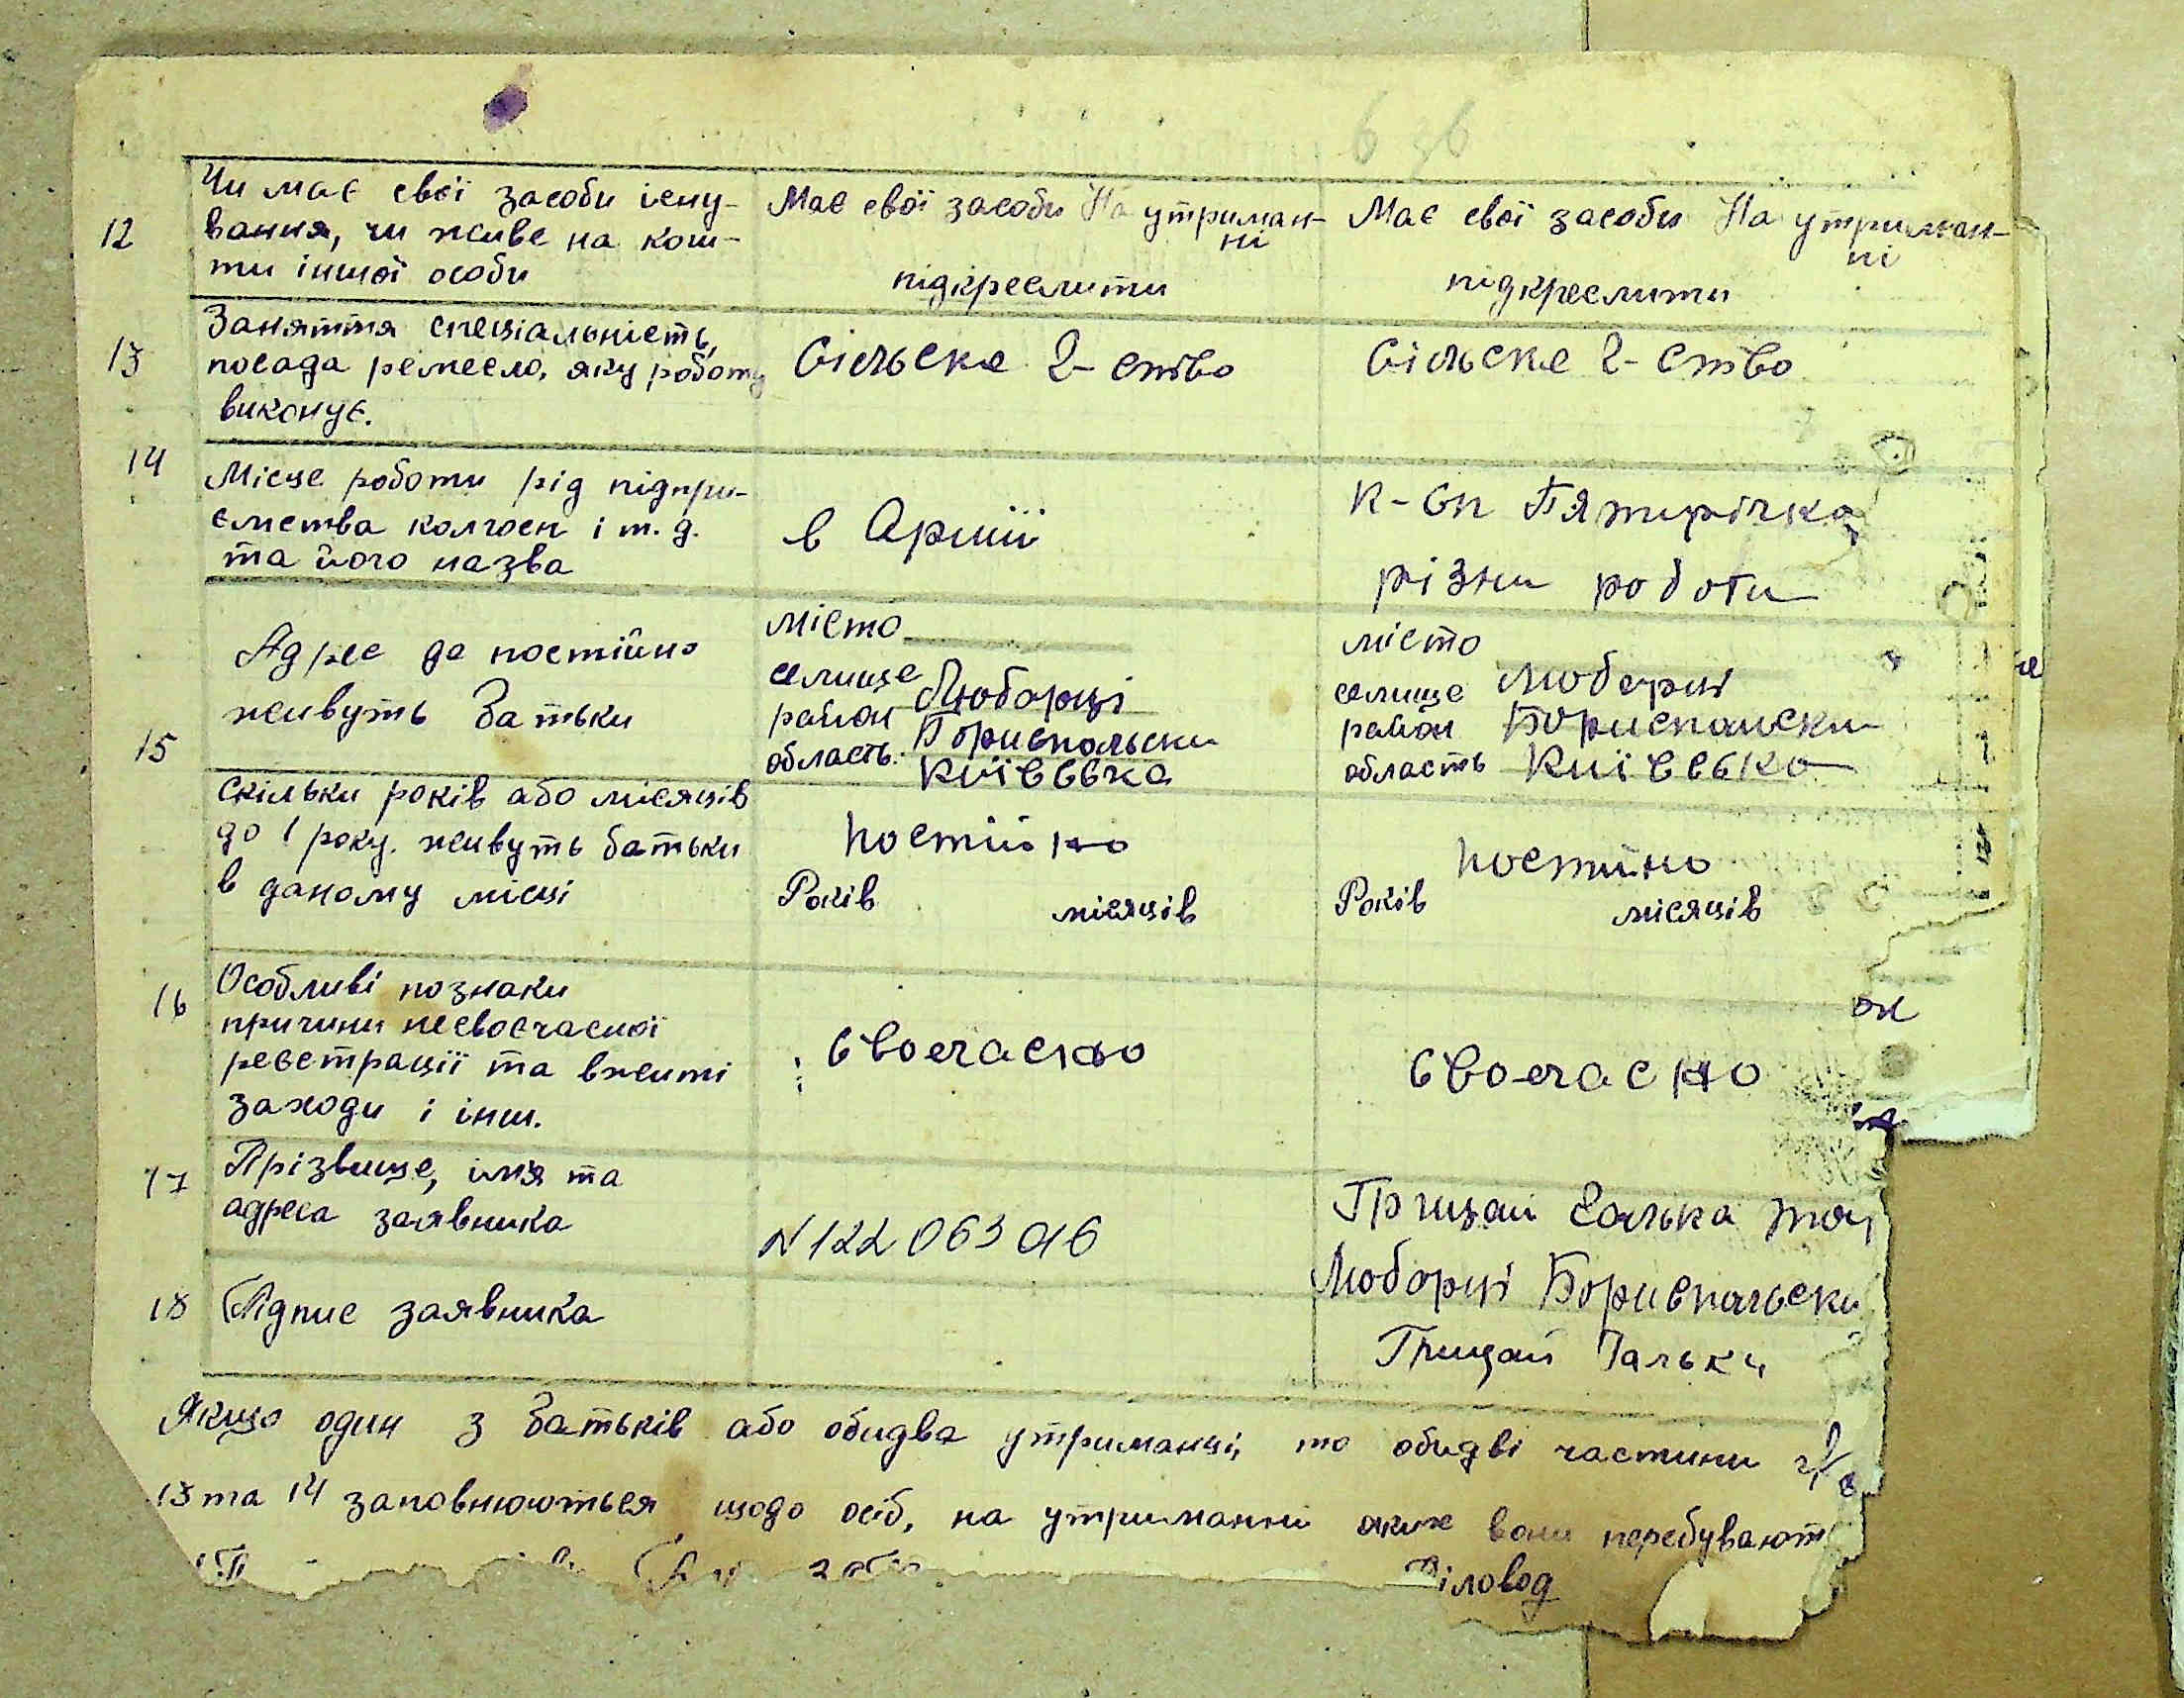 12
Чи має свої засоби існу-
вання, чи живе на кош-
ти іншої особи
Має свої засоби На утриман-
ні
підкреслити
Має свої засоби На утриман-
ні
підкреслити
13
Заняття спеціальність,
посада ремесло, яку роботу
виконує.
Сільске г-ство
Сільске г-ство
14
Місце роботи рід підпри-
ємства колгосп і т. д.
та його назва
в Армії
К-сп Пятирічка
різни роботи
15
Адрес де постійно
живуть батьки
місто
селище Любарці
район Бориспольски
область. Київська
місто
селище Любарці
район Бориспольски
область Київсько
Скільки років або місяців
до 1 року. живуть батьки
в даному місці
постійно
Років місяців
постійно
Років місяців
16
Особливі познаки
причини несвоєчасної
реєстрації та вжиті
заходи і інш.
своечасно
своечасно
17
Прізвище, ім'я та
адреса заявника
N 122 063 а б
Грицай Галька
Любарці Бориспольски
18
Підпис заявника
Грицай Гальки
Якщо один з батьків або обидва утриманці, то обидві частини
13 та 14 заповнюються щодо осіб, на утриманні яких вони перебувают
Діловод